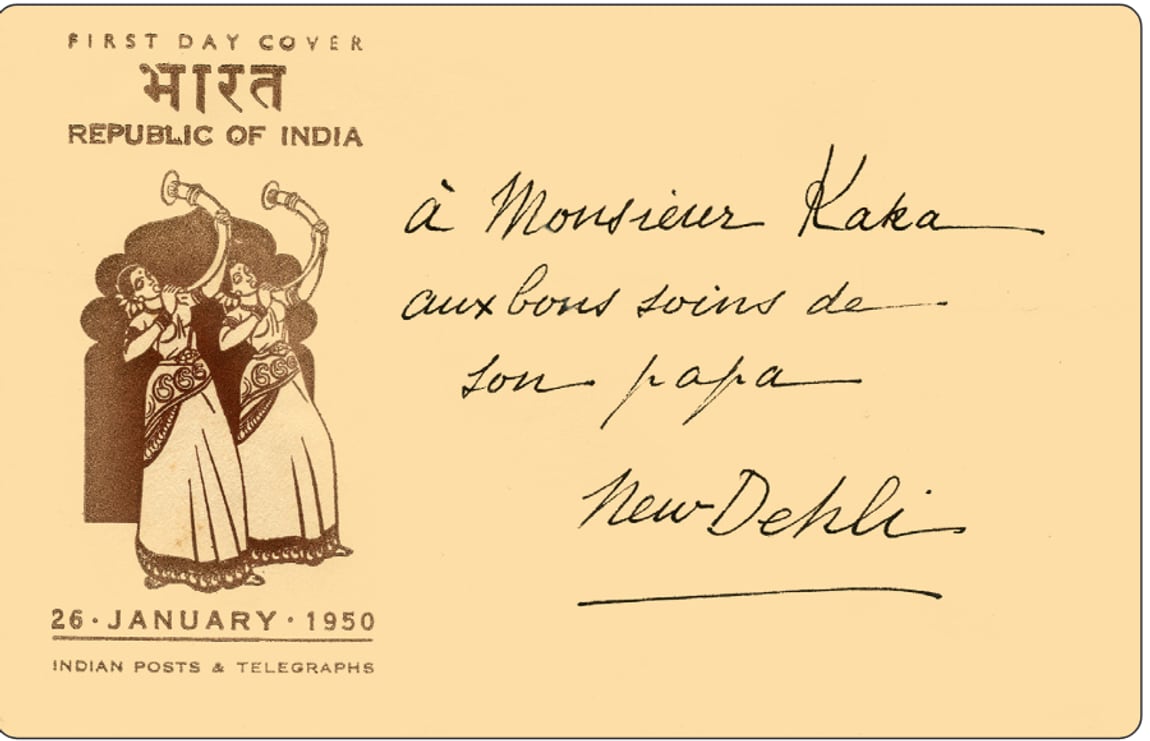 FIRST DAY COVER
भारत
REPUBLIC OF INDIA
à Monsieur Kaka
aux bons soins de
son papa
New Dehli
26·JANUARY·1950
INDIAN POSTS & TELEGRAPHS